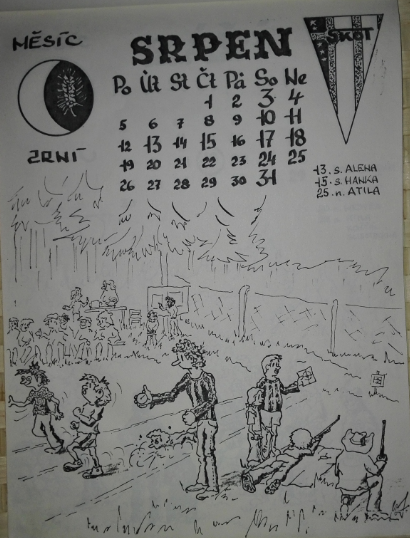 MĚSÍC
SRPEN
ŠKOT
Po Út St Čt Pá So Ne
1 2 3 4
5 6 7 8 9 10 11
12 13 14 15 16 17 18
19 20 21 22 23 24 25
26 27 28 29 30 31
ZRNÍ
13. s. ALENA
15. s. HANKA
25. n. ATILA